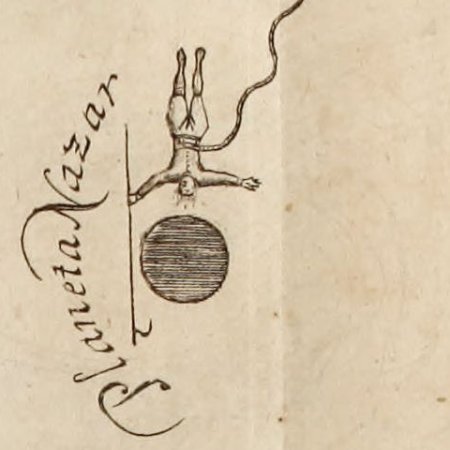 Planeta Nazar